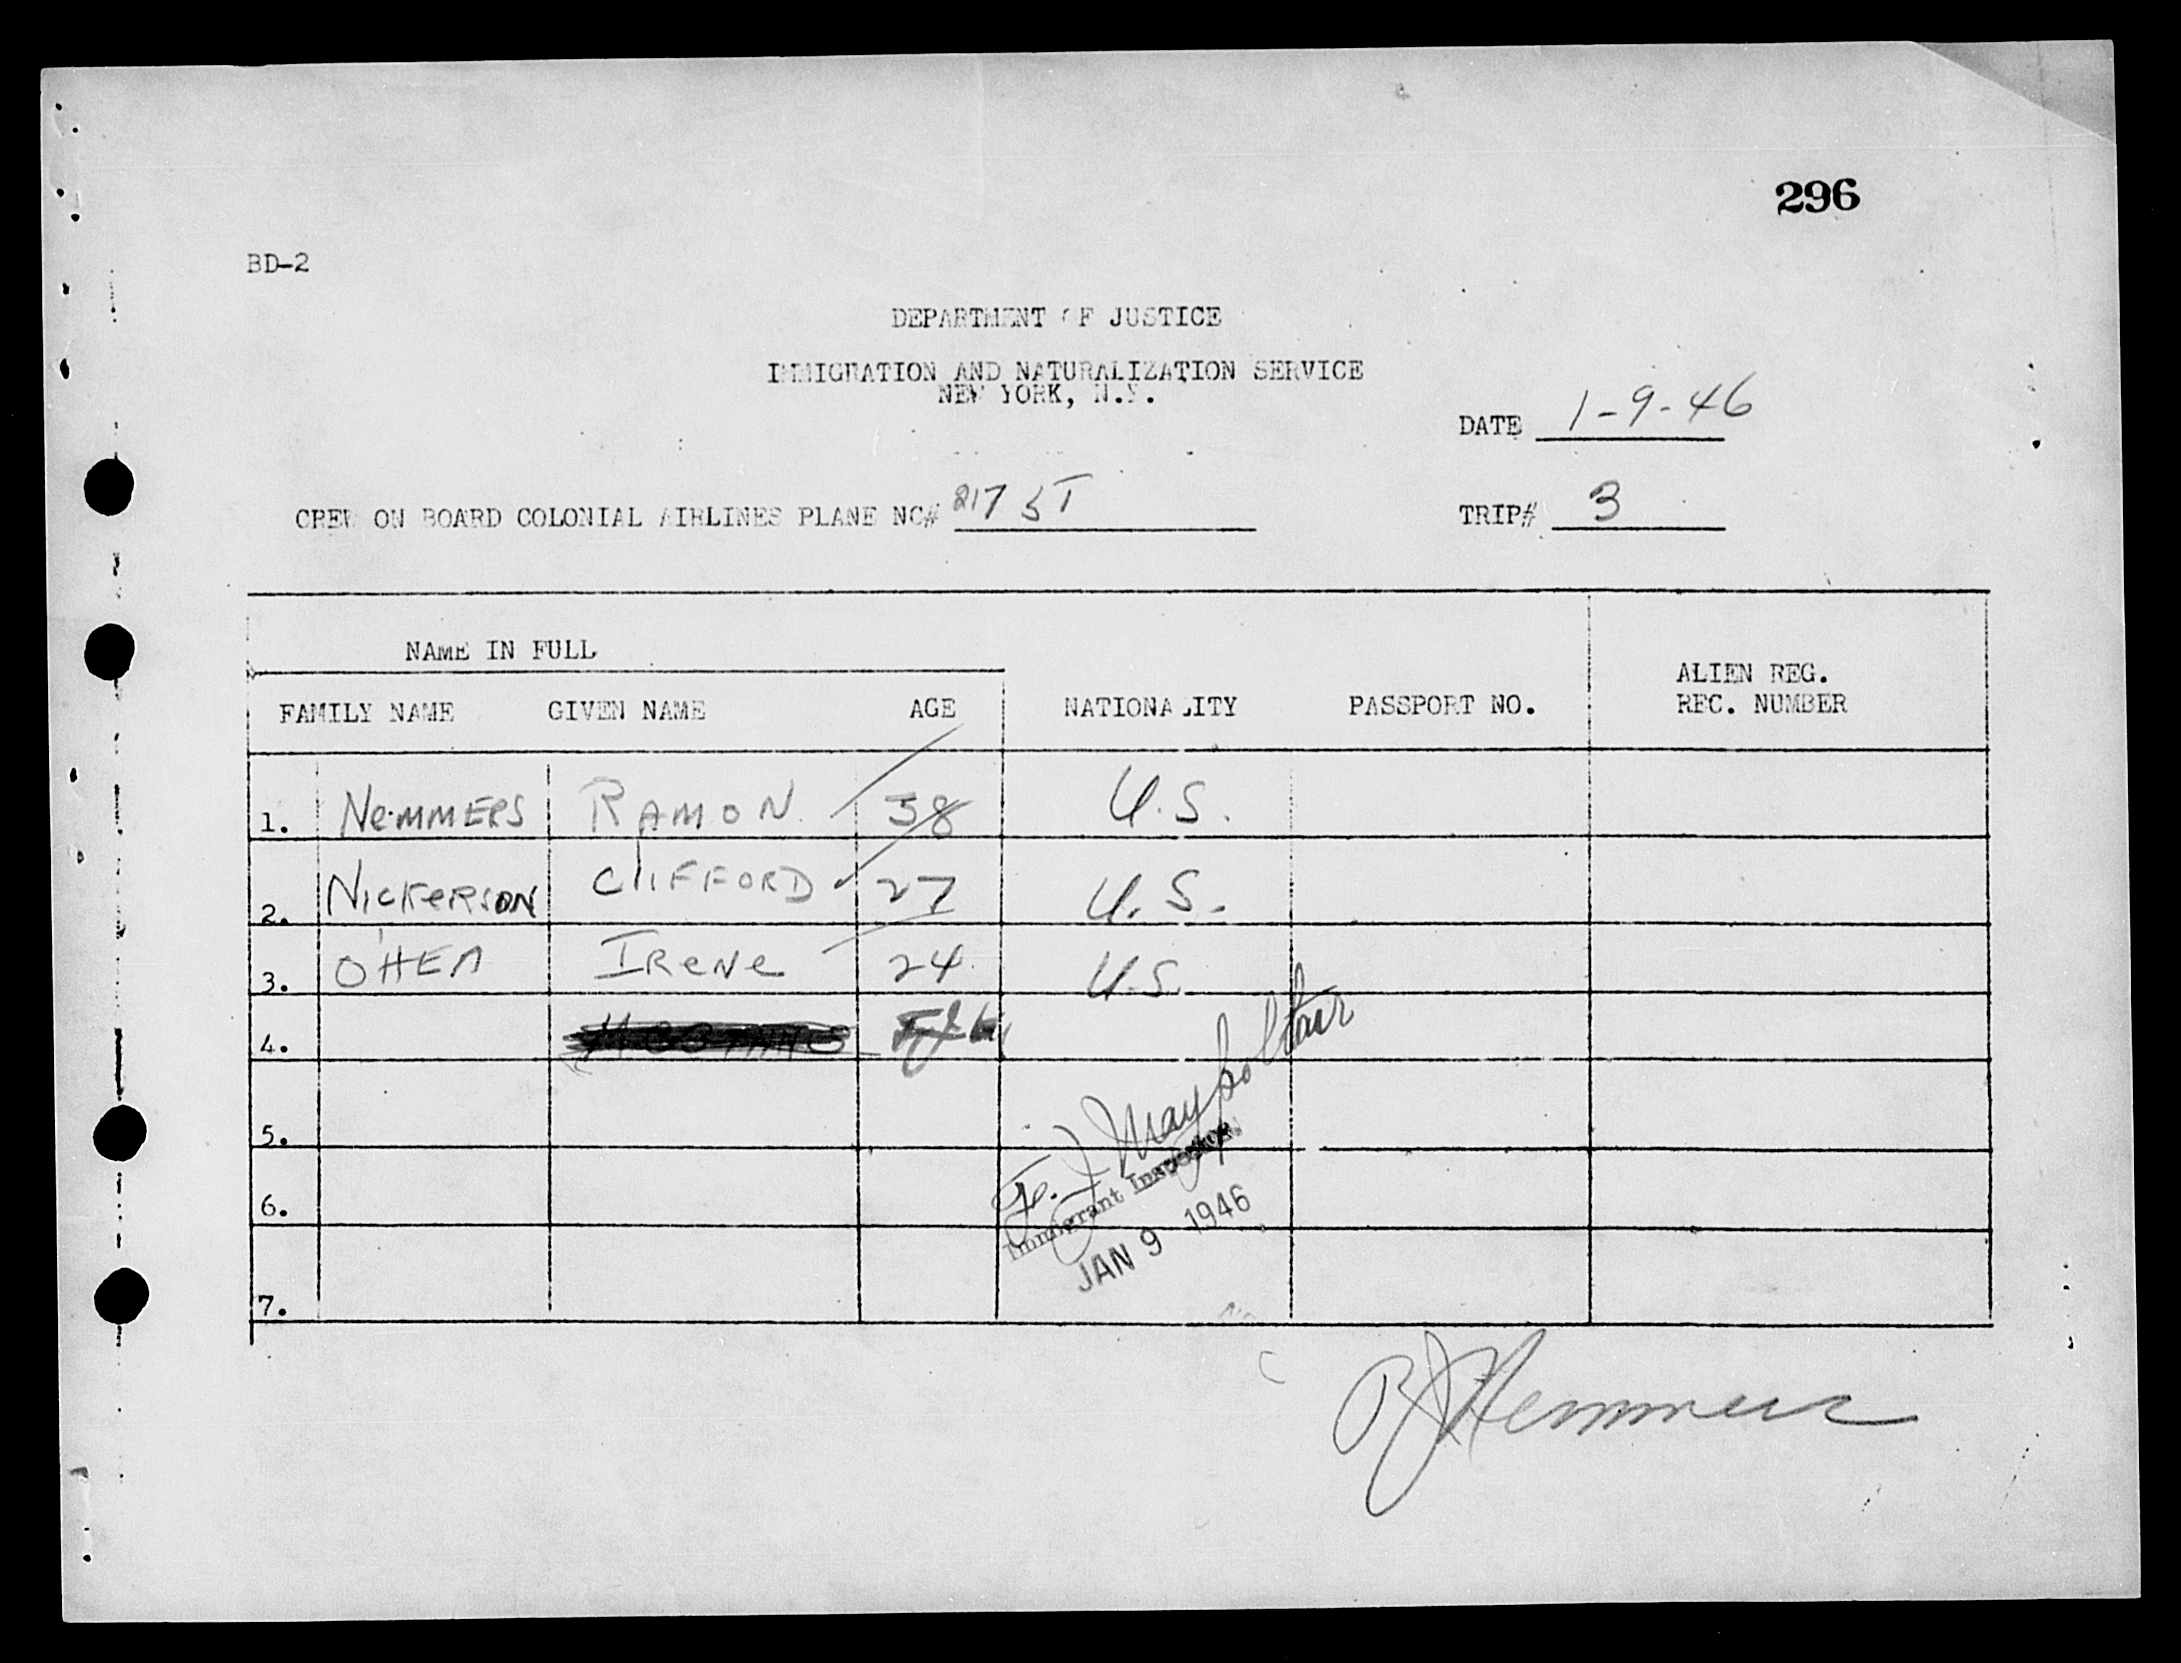 296
BD-2
DEPARTMENT OF JUSTICE
IMMIGRATION AND NATURALIZATION SERVICE
NEW YORK, N.Y.
DATE 1-9-46
CREW ON BOARD COLONIAL AIRLINES PLANE NC#
TRIP# 3
NAME IN FULL
FAMILY NAME GIVEN NAME AGE NATIONALITY PASSPORT NO. ALIEN REG. REC. NUMBER
1. NeMMERS RAMON 38 U.S.
2. NICKeRSON CLIFFORD 27 U.S.
3. O'HEA IReNe 24 U.S.
4.
5.
6.
7.
Immigrant Inspector
JAN 9 1946
R J Nemmers